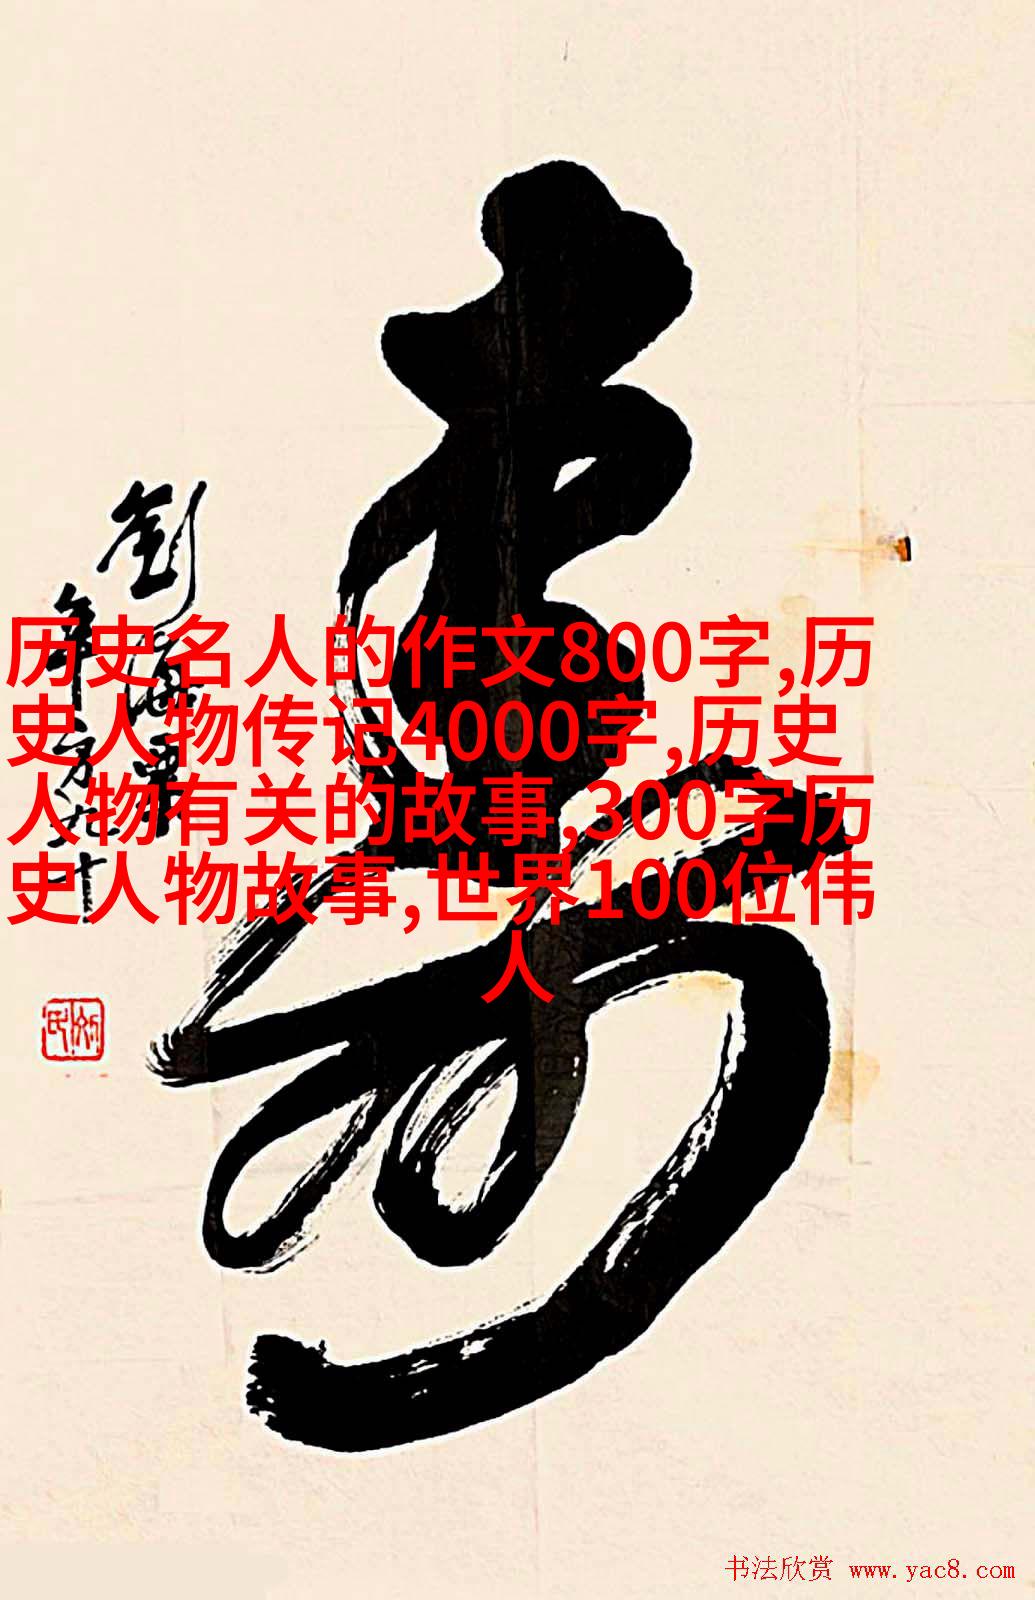 壽
劉海粟
年方九十
历史名人的作文800字,历
史人物传记4000字,历史
人物有关的故事,300字历
史人物故事,世界100位伟
人
书法欣赏 www.yac8.com